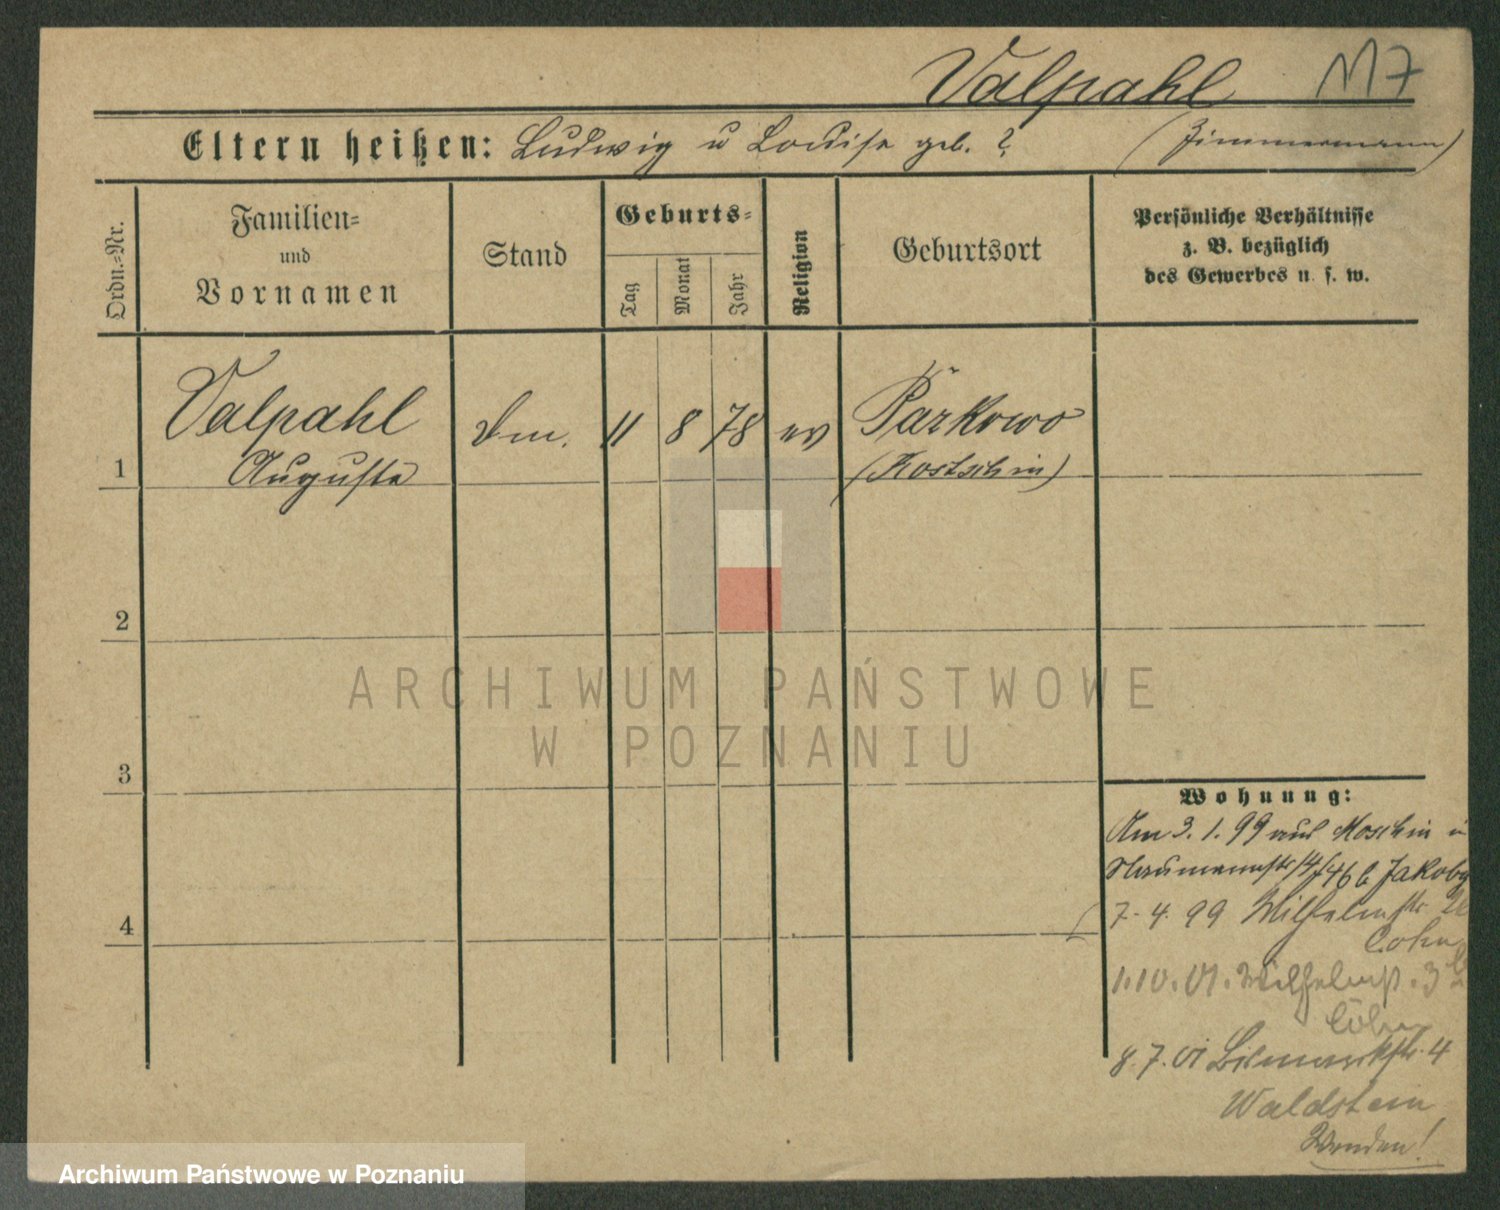 Valpahl 117
Eltern heißen: Ludwig u Louise geb. ? (Zimmermann)
Ordn.-Nr.
Familien-
und
Vornamen
Stand
Geburts-
Tag
Monat
Jahr
Religion
Geburtsort
Persönliche Verhältnisse
z. B. bezüglich
des Gewerbes u. s. w.
Valpahl
Auguste
1
11 8 78 ev
Parkowo
(Kostschin)
2
ARCHIWUM PAŃSTWOWE
W POZNANIU
3
Wohnung:
Am 3. 1. 99 aus Moschin in
Naumannstr 14/46 b Jakoby
4
7. 4. 99 Wilhelmstr
Cohn
1.10.01. Wilhelmst.
Cohn
8. 7. 01 Bismarckstr. 4
Waldstein
Wenden!
Archiwum Państwowe w Poznaniu